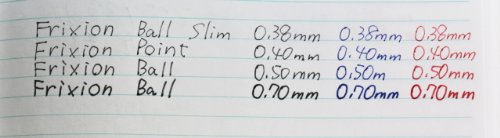 Frixion Ball Slim 0.38mm 0.38mm 0.38mm
Frixion Point 0.40mm 0.40mm 0.40mm
Frixion Ball 0.50mm 0.50m 0.50mm
Frixion Ball 0.70mm 0.70mm 0.70mm